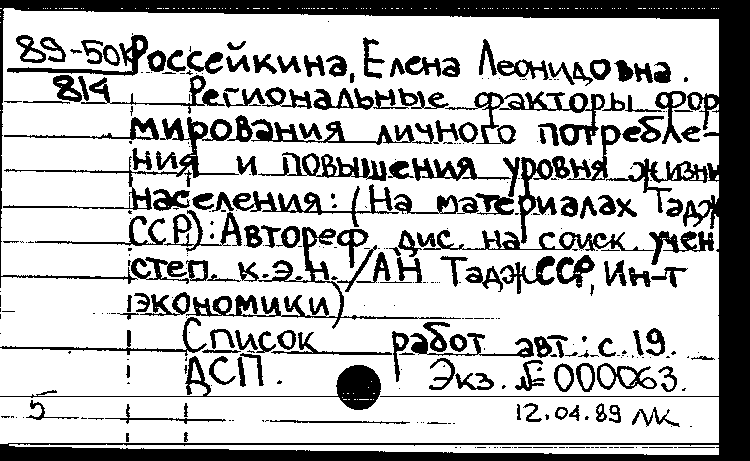 89-50к Россейкина, Елена Леонидовна.
814 Региональные факторы фор
мирования личного потребле-
ния и повышения уровня жизни
населения: (На материалах Тадж
ССР): Автореф. дис. на соиск. учен.
степ. к.э.н. /АН ТаджССР, Ин-т
экономики)
Список работ авт.: с. 19.
ДСП. Экз. № 000063.
5 12.04.89 МК